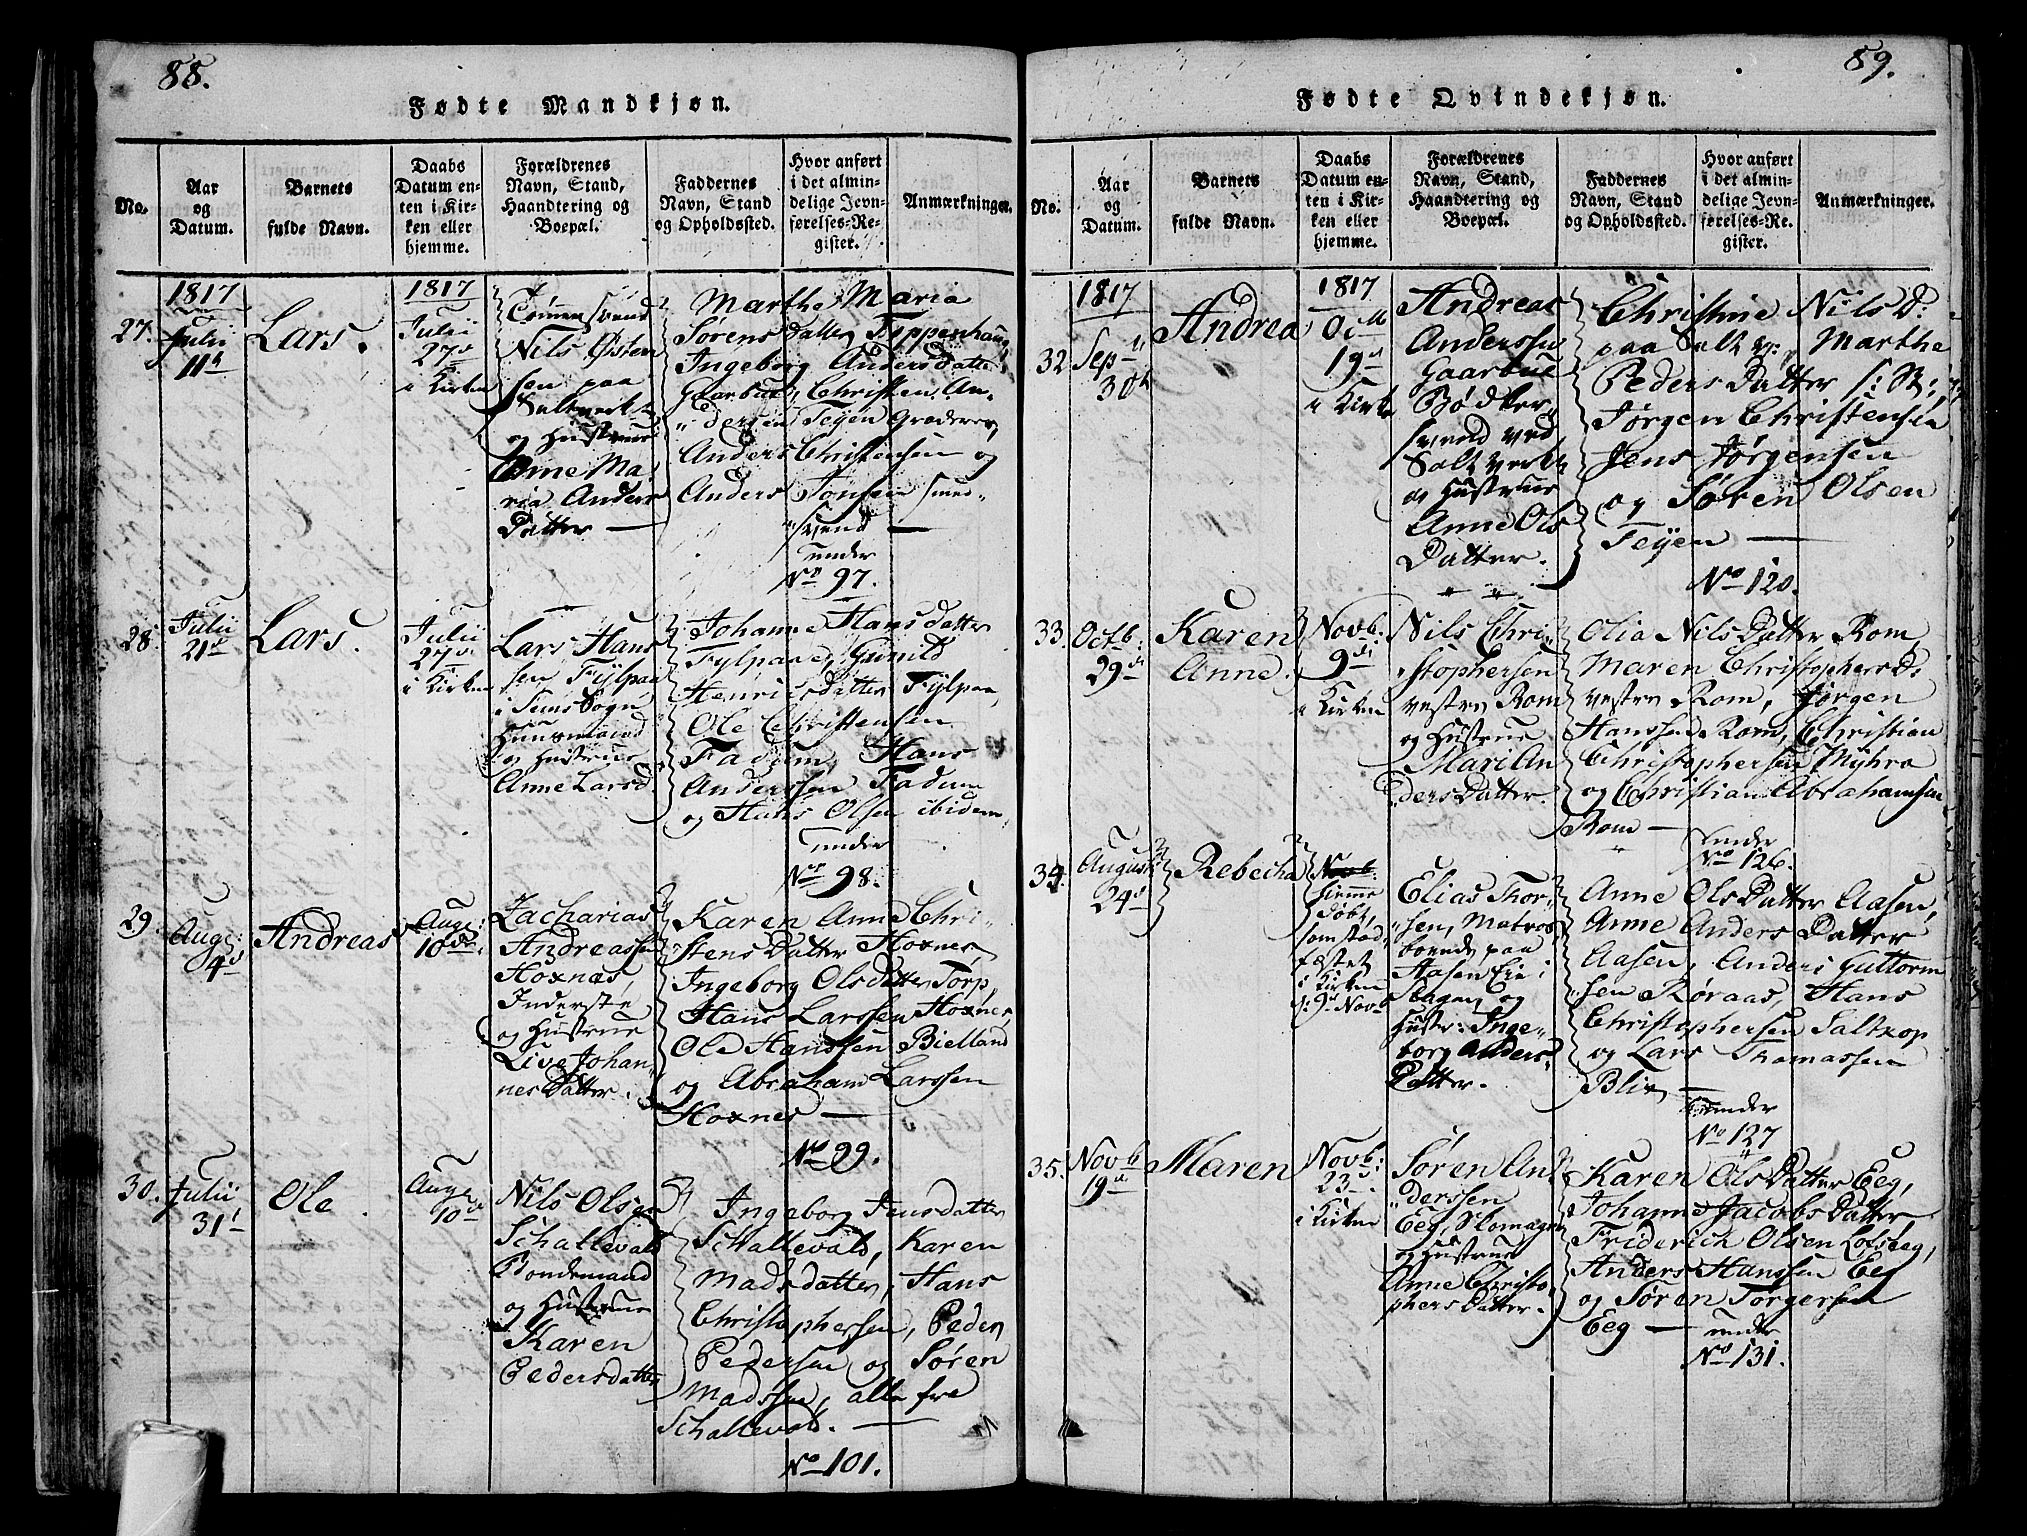 88.
Fødte Mandkjøn.
No.
Aar
og
Datum.
Barnets
fulde Navn.
Daabs
Datum en-
ten i Kir-
ken eller
hjemme.
Forældrenes
Navn, Stand,
Haandtering og
Boepæl.
Faddernes
Navn, Stand
og Opholdssted.
Hvor anført
i det almin-
delige Jevn-
førelses-Re-
gister.
Anmærkninger.
27.
1817
Julii
11te
Lars.
1817
Julii
27de
i Kirken
Tømmersvend
Nils Østen
sen paa
Saltverket
og Hustrue
Anne Ma
ria Anders
Datter —
Marthe Maria
Sørens Datter Tippenhaug
Ingeborg Anders datter
Gaarbue, Christen An-
dersen Teyen Graderer,
Anders Christensen og
Anders Jonsen smed-
svend —
under
No 97.
28.
Julii
21de
Lars.
Julii
27de
i Kirken
Lars Hans
sen Fylpaa
i Sems Sogn
Huusmand
og Hustrue
Anne Larsd.
Johanne Hansdatter
Fylpaa ed, Gunild
Henrichsdatter Fylpaa,
Ole Christensen
Fadum, Hans
Anderssen Fadum
og Hans Olsen ibidem,
under
No 98.
29.
Aug:
4de
Andreas
Aug:
10de
Zacharias
Andreassen
Hoxnæs,
Inderste
og Hustrue
Live Johan
nes Datter.
Karen Anne Chri-
stens Datter Hoxnes
Ingeborg Olsdatter Torp,
Hans Larssen Hoxnes,
Ole Hanssen Bielland
og Abraham Larssen
Hoxnes —
No 99.
30.
Julii
31te
Ole
Aug:
10de
Nils Olsen
Schallevald
Bondemand
og Hustrue
Karen
Pedersdatter
Ingeborg Jensdatter
Schallevald, Karen
Madsdatter, Hans
Christophersen, Peder
Pedersen og Søren
Madssen, alle fra
Schallevald. —
No 101.
89.
Fødte Qvindekjøn.
No.
Aar
og
Datum.
Barnets
fulde Navn.
Daabs
Datum en-
ten i Kir-
ken eller
hjemme.
Forældrenes
Navn, Stand,
Haandtering og
Boepæl.
Faddernes
Navn, Stand
og Opholdssted.
Hvor anført
i det almin-
delige Jevn-
førelses-Re-
gister.
Anmærkninger.
32
1817
Sep-
30te
Andrea
1817
Octb
19de
i Kirken
Andreas
Anderssen
Gaarbue
Bødker
svend ved
Saltverket
og Hustrue
Anne Ols
Datter.
Christine Nils D:
paa Saltv: Marthe
Peders Datter s: St:,
Jørgen Christensen
Jens Jørgensen
og Søren Olsen
Teyen —
No 120.
33.
Octb:
29de
Karen
Anne
Novb:
9de
i Kirken
Nils Chri
stophersen
vestre Rom
og Hustrue
Mari An
ders Datter.
Olia Nils Datter Rom,
Maren Christophers D:
vestre Rom, Jørgen
Hanssen Rom, Christian
Christophersen Myhra
og Christian Abrahamsen
Rom —
under
No 126.
34.
August
24de
Rebecha
Novb.
Hiemme
døbt,
som stad
fæstet
i Kirken
d: 9de Novb
Elias Thor
sen, Matros
boende paa
Aasen Eie i
Slagen og
Hustr: Inge-
borg Anders
Datter.
Anne Ols Datter Aasen,
Anne Anders Datter
Aasen, Anders Guttorm
sen Røraas, Hans
Christophersen Saltkop
og Lars Thomassen
Blix, —
under
No 127
35.
Novb
19de
Maren
Novb:
23de
i Kirken
Søren An
derssen
Eeg, Slomager
og Hustrue
Anne Christo
phers Datter.
Karen Ols Datter Eeg,
Johanne Jacobs Datter,
Friderich Olsen Lofseeg,
Anders Hanssen Eeg
og Søren Torgersen
Eeg —
under
No 131.